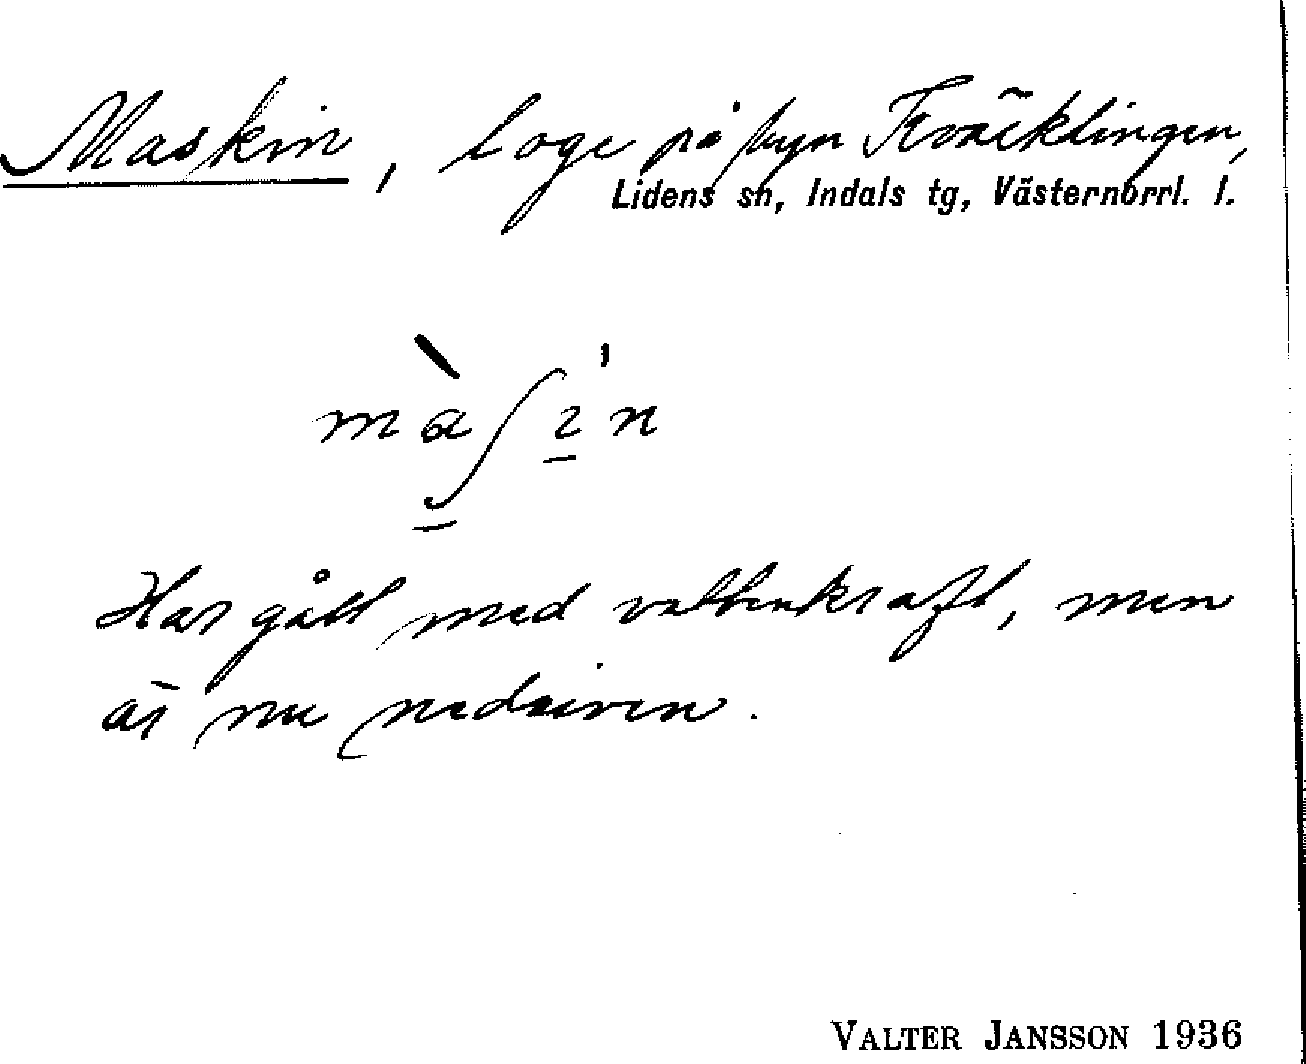 Maskin, loge på byn Kväcklingen,
Lidens sn, Indals tg, Västernorrl. l.
màʃın
Har gått med vattenkraft, men
är nu nedriven.
VALTER JANSSON 1936